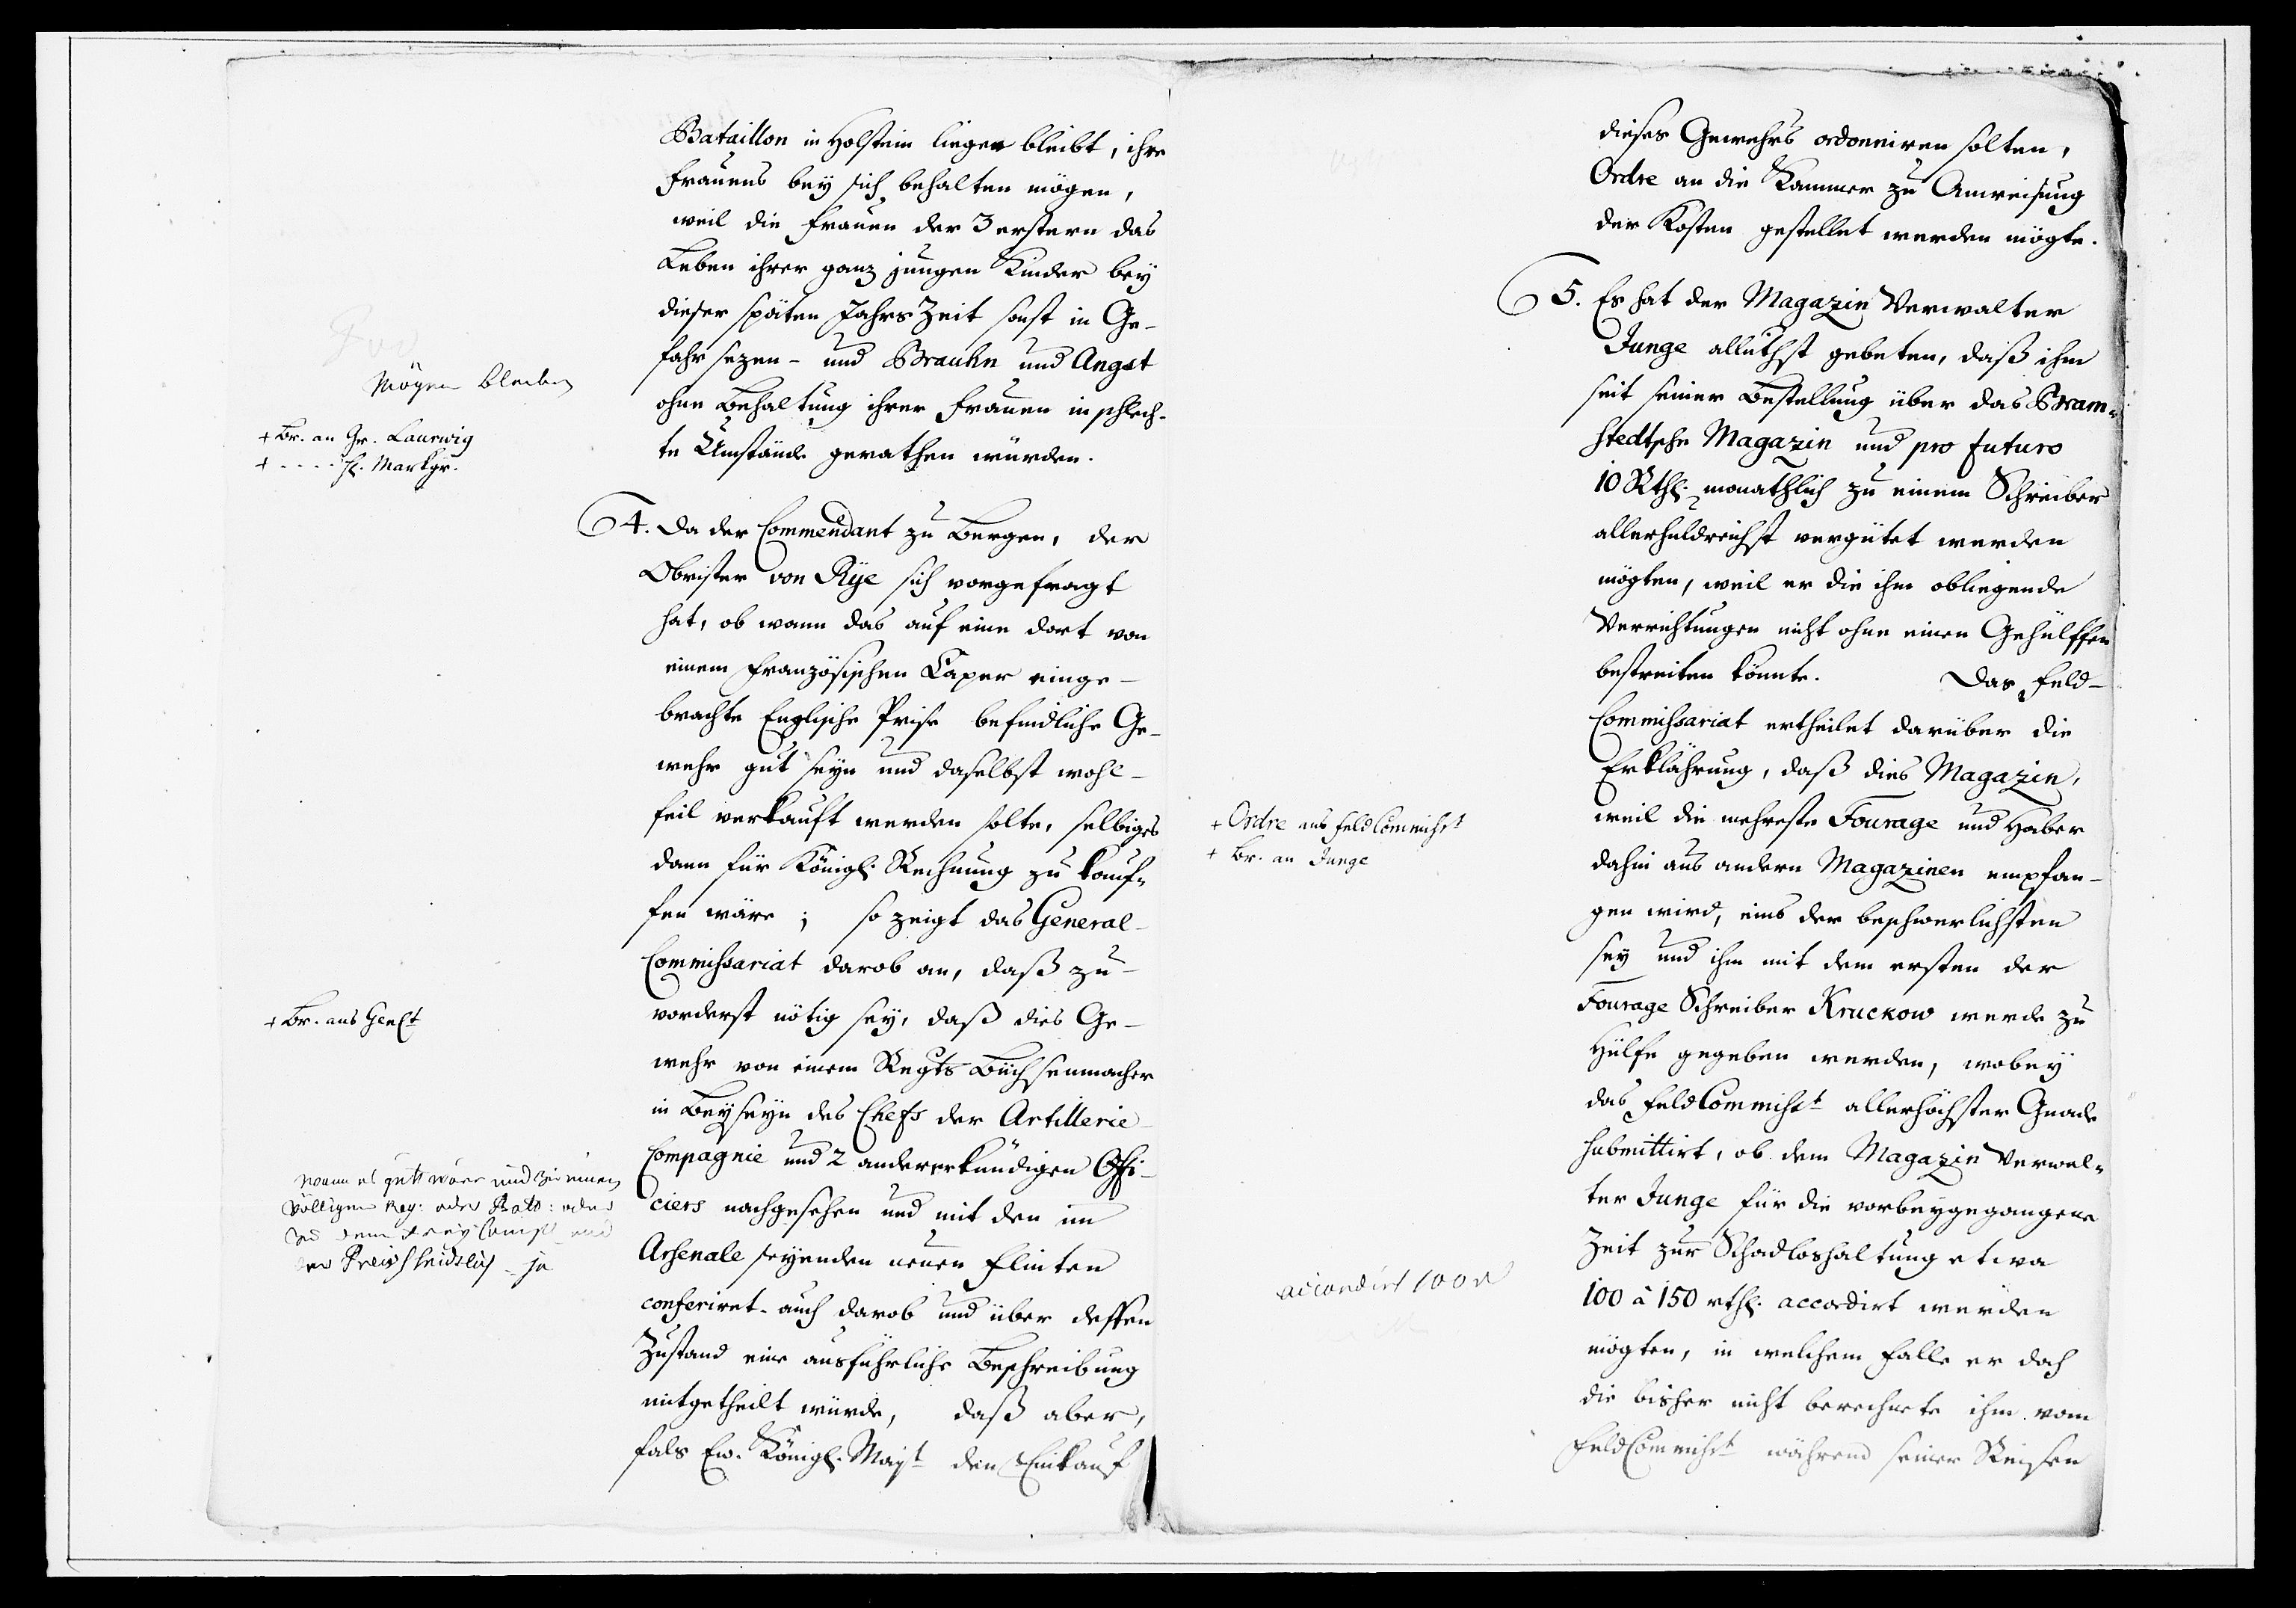 Bataillon in Holstein liegen bleibt, ihre
Frauens bey sich behalten mögen,
weil die Frauen der 3 erstern das
Leben ihrer ganz jungen Kinder bey
dieser späten Jahrs Zeit sonst in Ge-
fahr sezen - und Brauhn und Angst
ohne Behaltung ihrer Frauen in schlech-
te Umstände gerathen würden.
Mögen bleiben
+ Br. an Gr. Laurwig
+ - - - - H. Markgr.
4. Da der Commendant zu Bergen, der
Obrister von Rÿe sich vorgefragt
hat, ob wann das auf eine dort von
einem Französischen Caper einge-
brachte Englische Prise befindliche Ge-
wehr gut seyn und daselbst wohl-
feil verkauft werden solte, selbiges
dann für Königl. Rechnung zu kauf-
fen wäre; so zeigt das General-
Commissariat darob an, daß zu-
vorderst nötig sey, daß dies Ge-
wehr von einem Regts Büchsenmacher
in Beyseyn des Chefs der Artillerie-
Compagnie und 2 anderer kundigen Offi-
ciers nachgesehen und mit den im
Arsenale seyenden neuen Flinten
conferiret - auch darob und über dessen
Zustand eine ausführliche Beschreibung
mitgetheilt würde, daß aber,
fals Ew. Königl. Mayt den Einkauf
+ Br. ans Genct
wann es gutt wäre und zu einen
völligen Reg: oder Batt: oder
zu dem Frey Comp und
der Preis scheidlich - ja
dieses Gewehrs ordonniren solten,
Ordre an die Kammer zu Anweisung
der Kosten gestellet werden mögte.
5. Es hat der Magazin Verwalter
Junge alluthst gebeten, daß ihm
seit seiner Bestellung über das Bram-
stedtsche Magazin und pro futuro
10 Rthl. monathlich zu einem Schreiber
allerhuldreichst vergütet werden
mögten, weil er die ihm obliegende
Verrichtungen nicht ohne einen Gehülffen
bestreiten könnte. Das Feld-
Commissariat ertheilet darüber die
Erklährung, daß dies Magazin,
weil die mehreste Fourage und Haber
dahin aus andern Magazinen empfan-
gen wird, eins der beschwerlichsten
sey und ihm mit dem ersten der
Fourage Schreiber Kruckow werde zu
Hülfe gegeben werden, wobey
das FeldCommisst allerhöchster Gnade
submittirt, ob dem Magazin Verwal-
ter Junge für die vorbeygegangene
Zeit zur Schadloshaltung etwa
100 à 150 rthl. accordirt werden
mögten, in welchem Falle er doch
die bisher nicht berechnete ihm vom
FeldCommisst während seiner Reisen
+ Ordre ans FeldCommisst
+ Br. an Junge
accordirt 100 rl